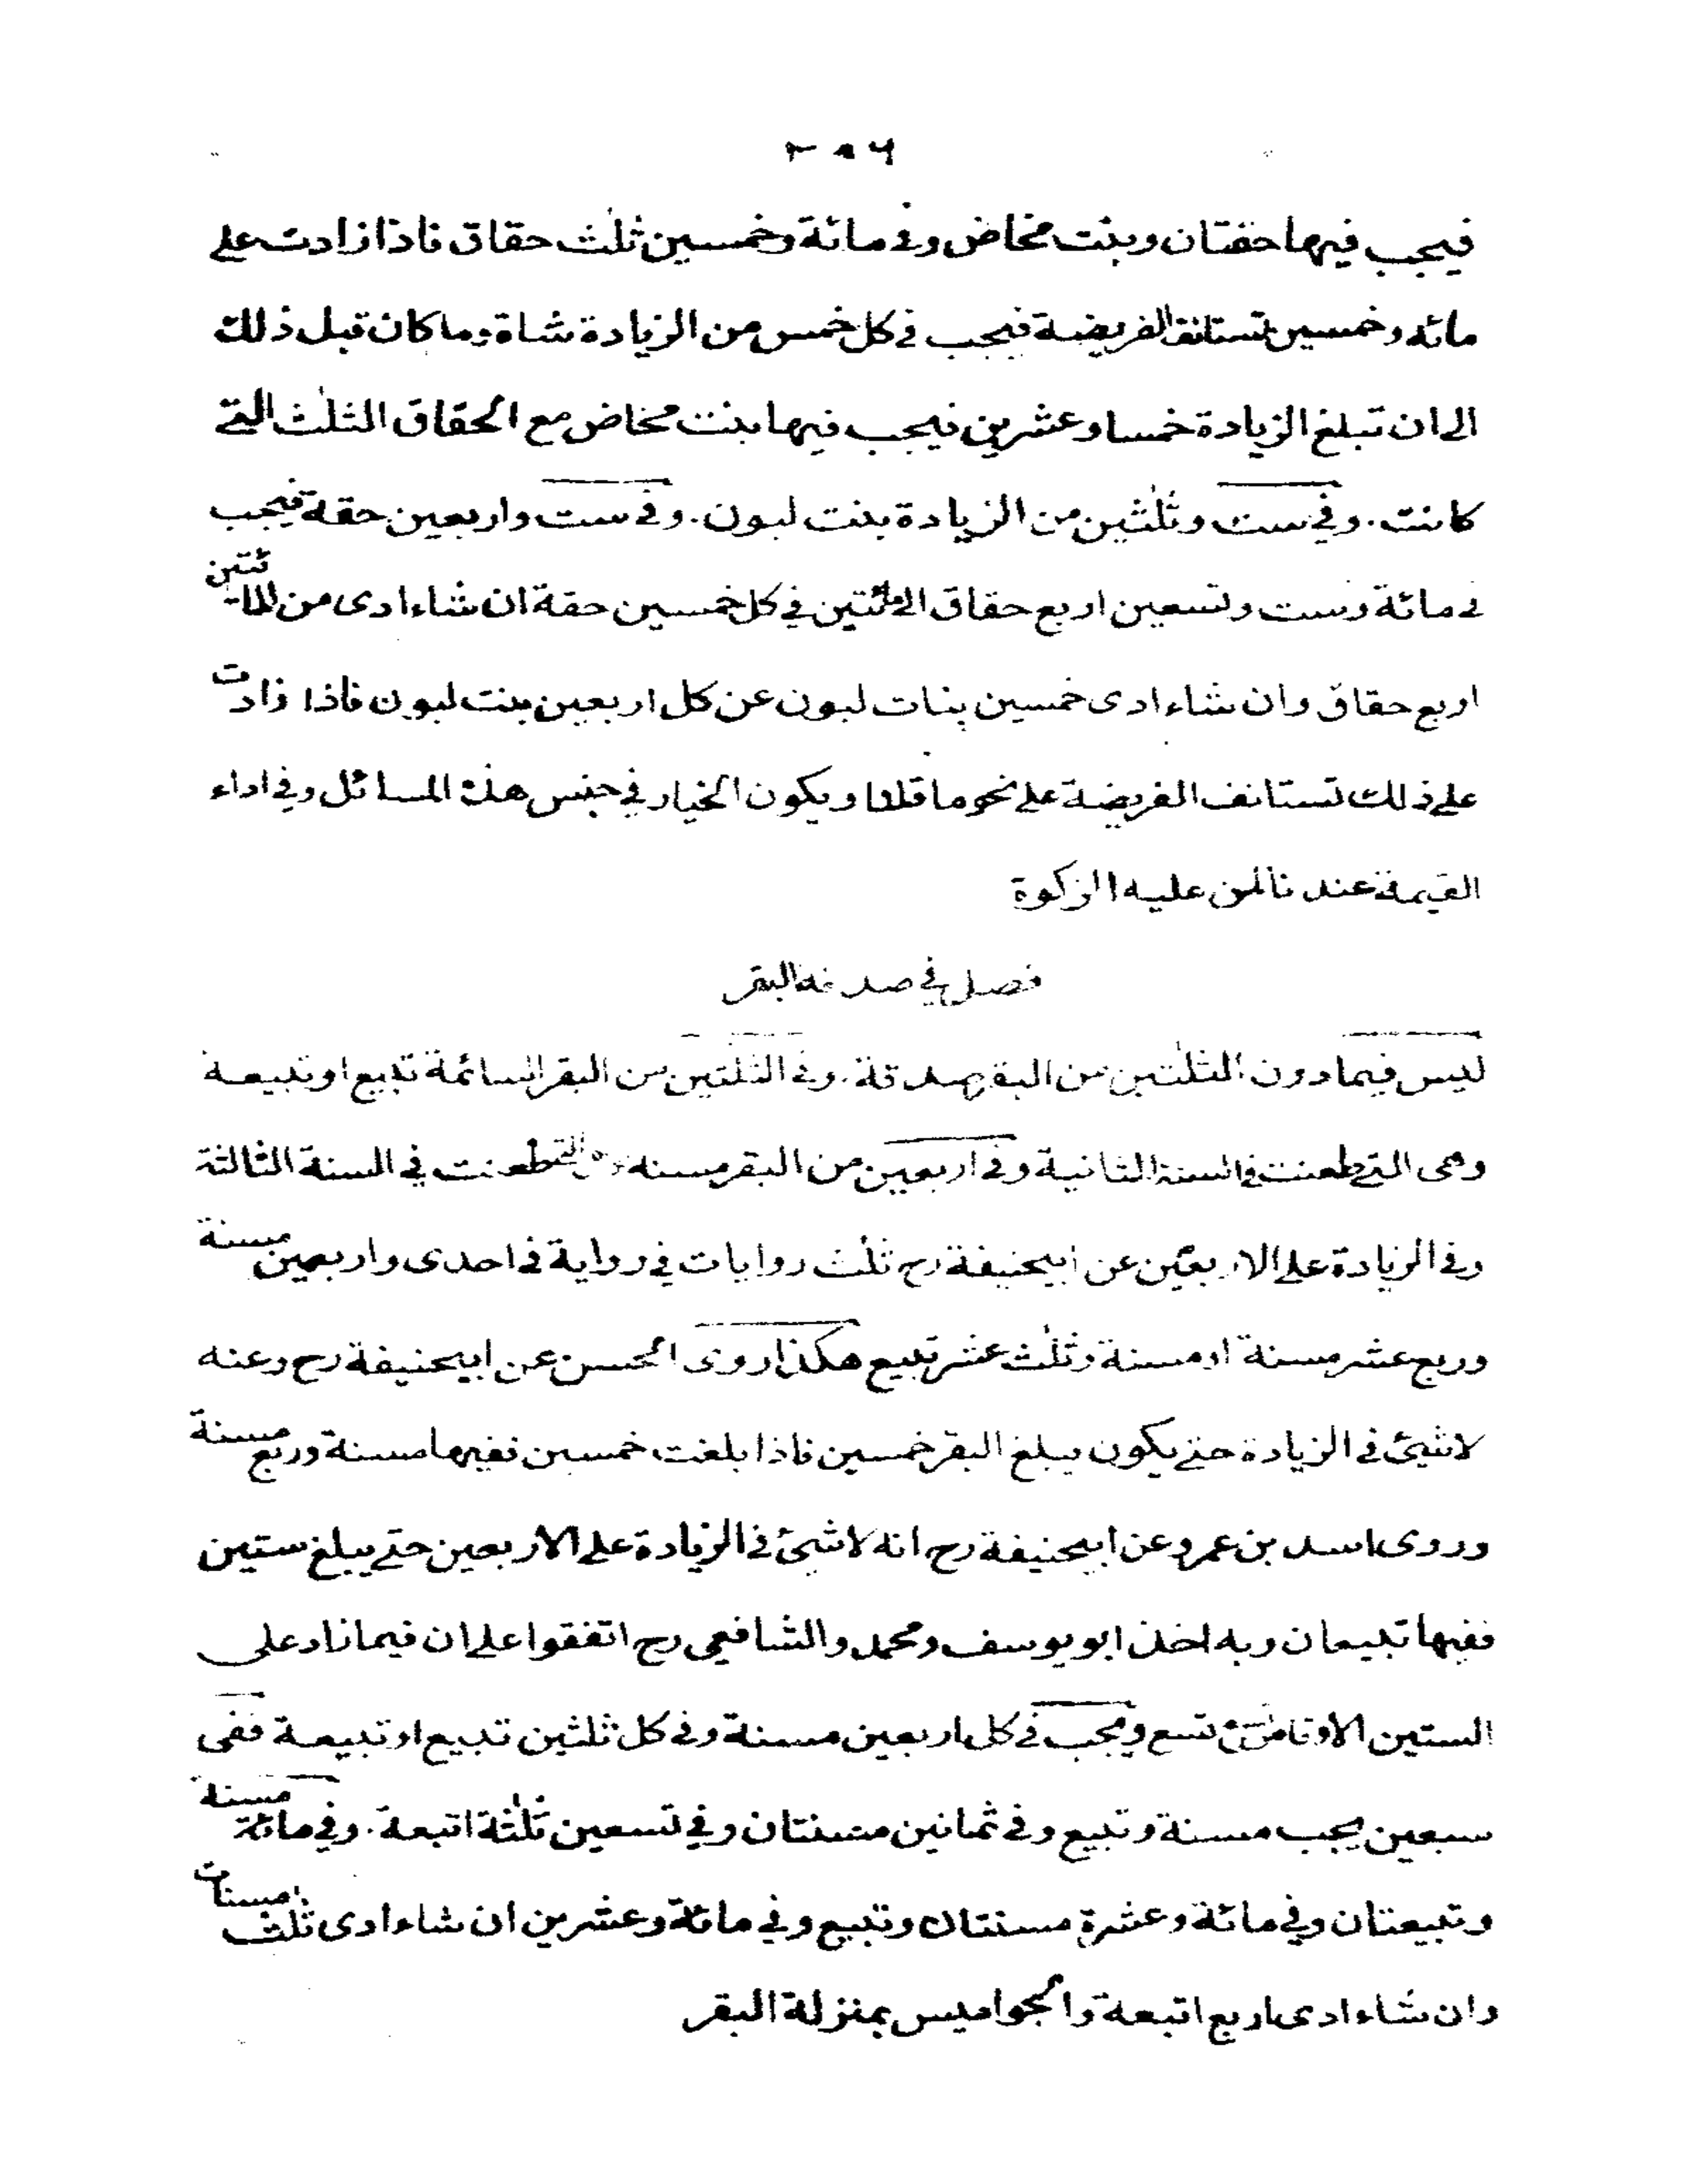 فيجب فيها حقتان وبنت مخاض وفى مائة وخمسين ثلٰث حقاق فاذا زادت على
مائه وخمسين تستانف الفريضة فيجب فى كل خمس من الزيادة شاة وما كان قبل ذلك
الى ان تبلغ الزيادة خمسا وعشرين فيجب فيها بنت مخاض مع الحقاق الثلٰث التى
كانت. وفى ست وثلٰثين من الزيادة بنت لبون. وفى ست واربعين حقة فيجب
فى مائة وست وتسعين اربع حقاق الى مائتين فى كل خمسين حقة ان شاء ادى من المائتين
اربع حقاق وان شاء ادى خمسين بنات لبون عن كل اربعين بنت لبون فاذا زادت
على ذلك تستانف الفريضة على نحو ما قلنا ويكون الخيار فى جنس هذه المسائل وفى اداء
القيمة عندنا لمن عليه الزكوة
فصل فى صدقة البقر
ليس فيما دون الثلٰثين من البقر صدقة. وفى الثلٰثين من البقر السائمة تبيع او تبيعة
وهى التى طعنت فى السنة الثانية وفى اربعين من البقر مسنه وهى التى طعنت فى السنة الثالثة
وفى الزيادة على الاربعين عن ابيحنيفة رح ثلٰث روايات فى رواية فى احدى واربعين مسنة
وربع عشر مسنة او مسنة وثلٰث عشر تبيع هكذا روى الحسن عن ابيحنيفة رح وعنه
لا شىئ فى الزيادة حتى يكون يبلغ البقر خمسين فاذا بلغت خمسين ففيها مسنة وربع مسنة
وروى اسد بن عمرو عن ابيحنيفة رح انه لا شىئ فى الزيادة على الاربعين حتى يبلغ ستين
ففيها تبيعان وبه اخذ ابو يوسف ومحمد والشافعى رح اتفقوا على ان فيما زاد على
الستين الاوقاص تسع ويجب فى كل اربعين مسنة وفى كل ثلثين تبيع او تبيعة ففى
سبعين يجب مسنة وتبيع وفى ثمانين مسنتان وفى تسعين ثلٰثة اتبعة. وفى مائة مسنة
وتبيعتان وفى مائة وعشرة مسنتان وتبيع وفى مائة وعشرين ان شاء ادى ثلث مسنات
وان شاء ادى اربع اتبعة والجواميس بمنزلة البقر